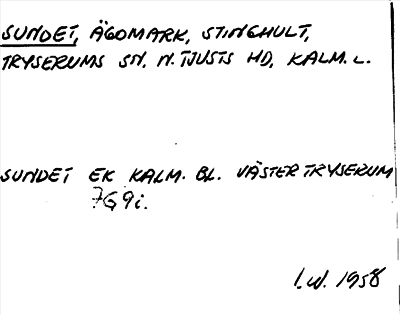 SUNDET, ÄGOMARK, STINGHULT,
TRYSERUMS SN, N. TJUSTS HD, KALM. L.
SUNDET EK KALM. BL. VÄSTER TRYSERUM
7G9i.
I.W. 1958